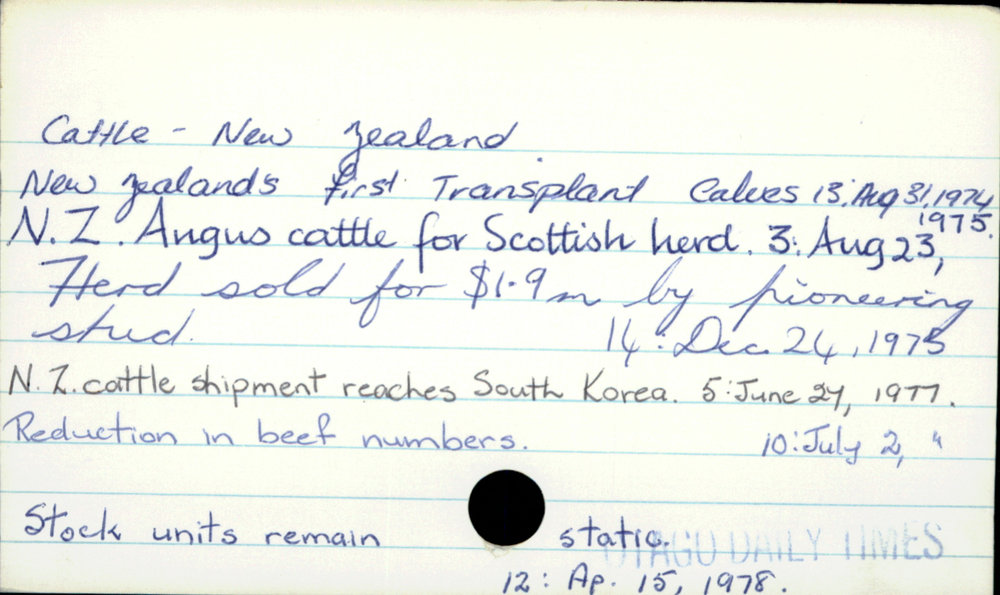 Cattle - New Zealand.
New Zealand's first Transplant Calves 13: Aug 31, 1974
N.Z. Angus cattle for Scottish herd. 3: Aug 23, 1975.
Herd sold for $1.9m by pioneering
stud. 14: Dec. 24, 1975
N.Z. cattle shipment reaches South Korea. 5: June 27, 1977.
Reduction in beef numbers. 10: July 2, "
Stock units remain static.
OTAGO DAILY TIMES
12: Ap. 15, 1978.